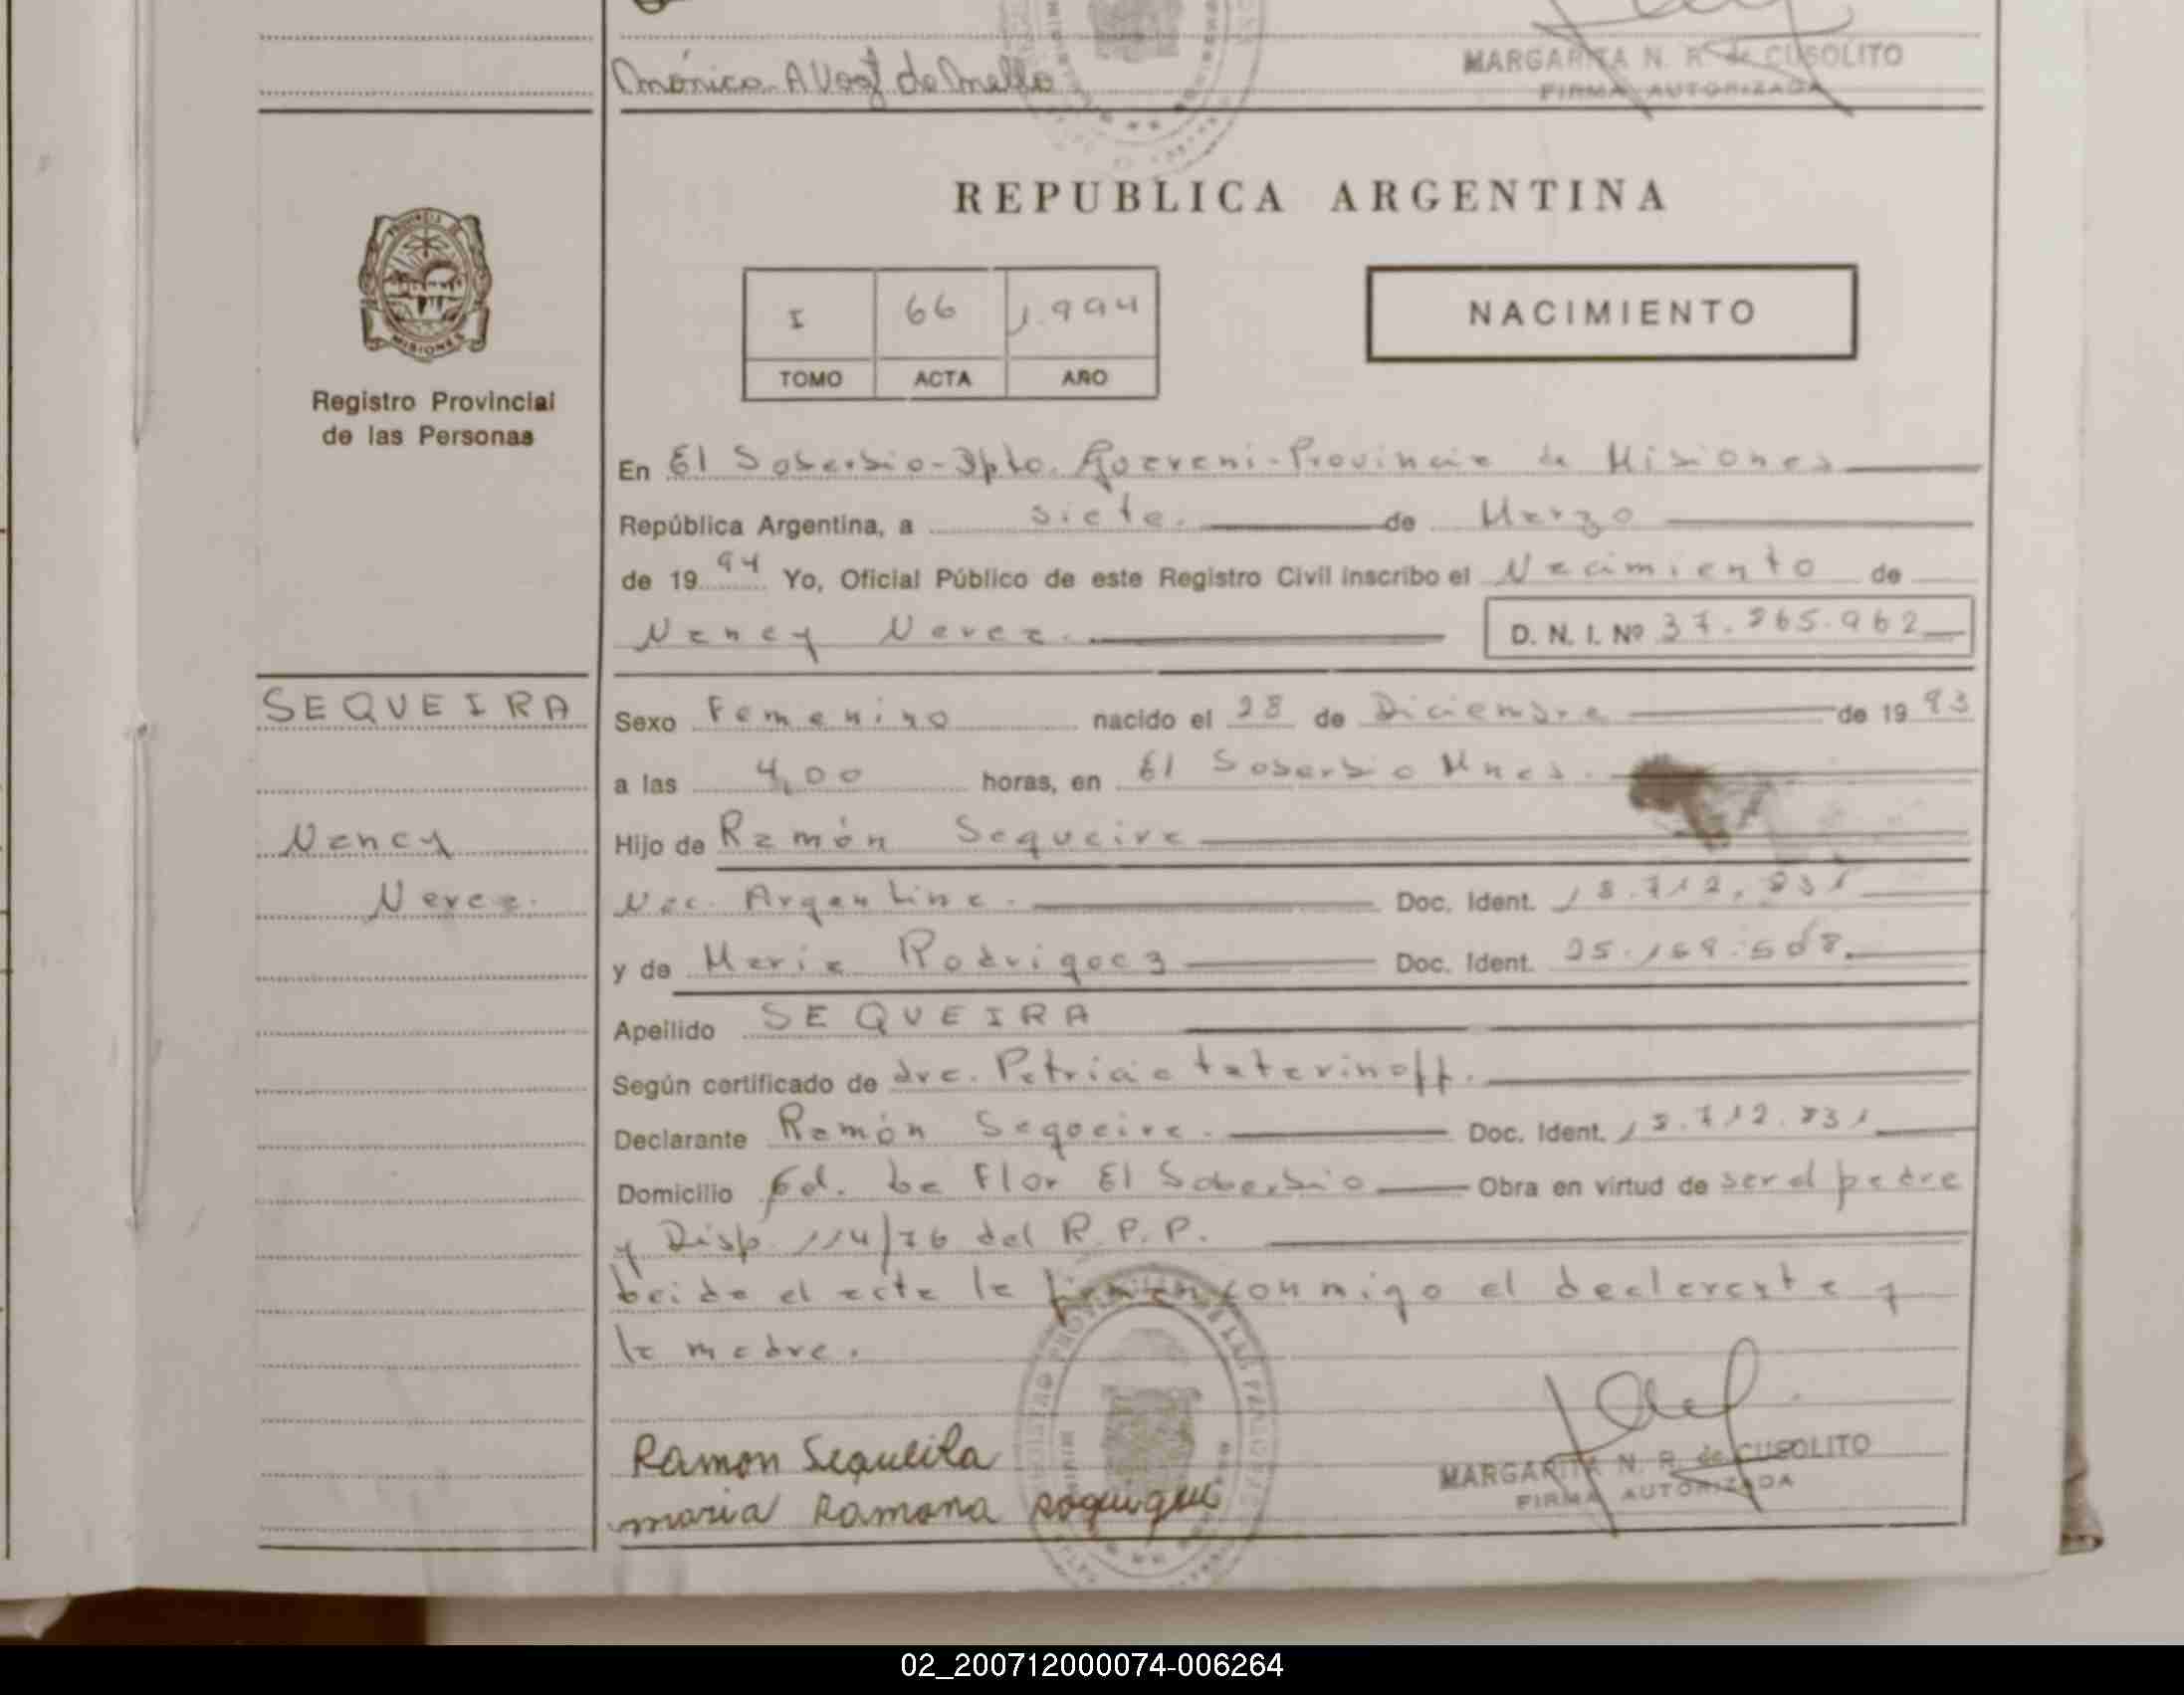 Mónica A Vogt de Mello
MARGARITA N. R. de CUSOLITO
FIRMA AUTORIZADA
REPUBLICA ARGENTINA
PROVINCIA DE
MISIONES
Registro Provincial
de las Personas
I 66 1.994
TOMO ACTA AÑO
NACIMIENTO
En El Soberbio-Dpto. Guarani-Provincia de Misiones
República Argentina, a siete. de Marzo
de 19 94 Yo, Oficial Público de este Registro Civil inscribo el Nacimiento de
Nancy Nerea. D. N. I. Nº 37. 965.962
SEQUEIRA
Nancy
Nerea.
Sexo Femenino nacido el 28 de Diciembre de 19 93
a las 4,00 horas, en El Soberbio Mnes.
Hijo de Ramón Sequeira
Nac. Argentina. Doc. Ident. 18.712.831
y de Maria Rodriguez Doc. Ident. 25.159.508.
Apellido SEQUEIRA
Según certificado de dra. Patricia tatarinoff.
Declarante Ramón Sequeira. Doc. Ident. 18.712.831
Domicilio Cd. La Flor El Soberbio Obra en virtud de ser el padre
y Disp. 114/76 del R.P.P.
Leida el acta la firman conmigo el declarante y
la madre.
Ramon Sequeira
maria Ramona
MARGARITA N. R. de CUSOLITO
FIRMA AUTORIZADA
02_200712000074-006264